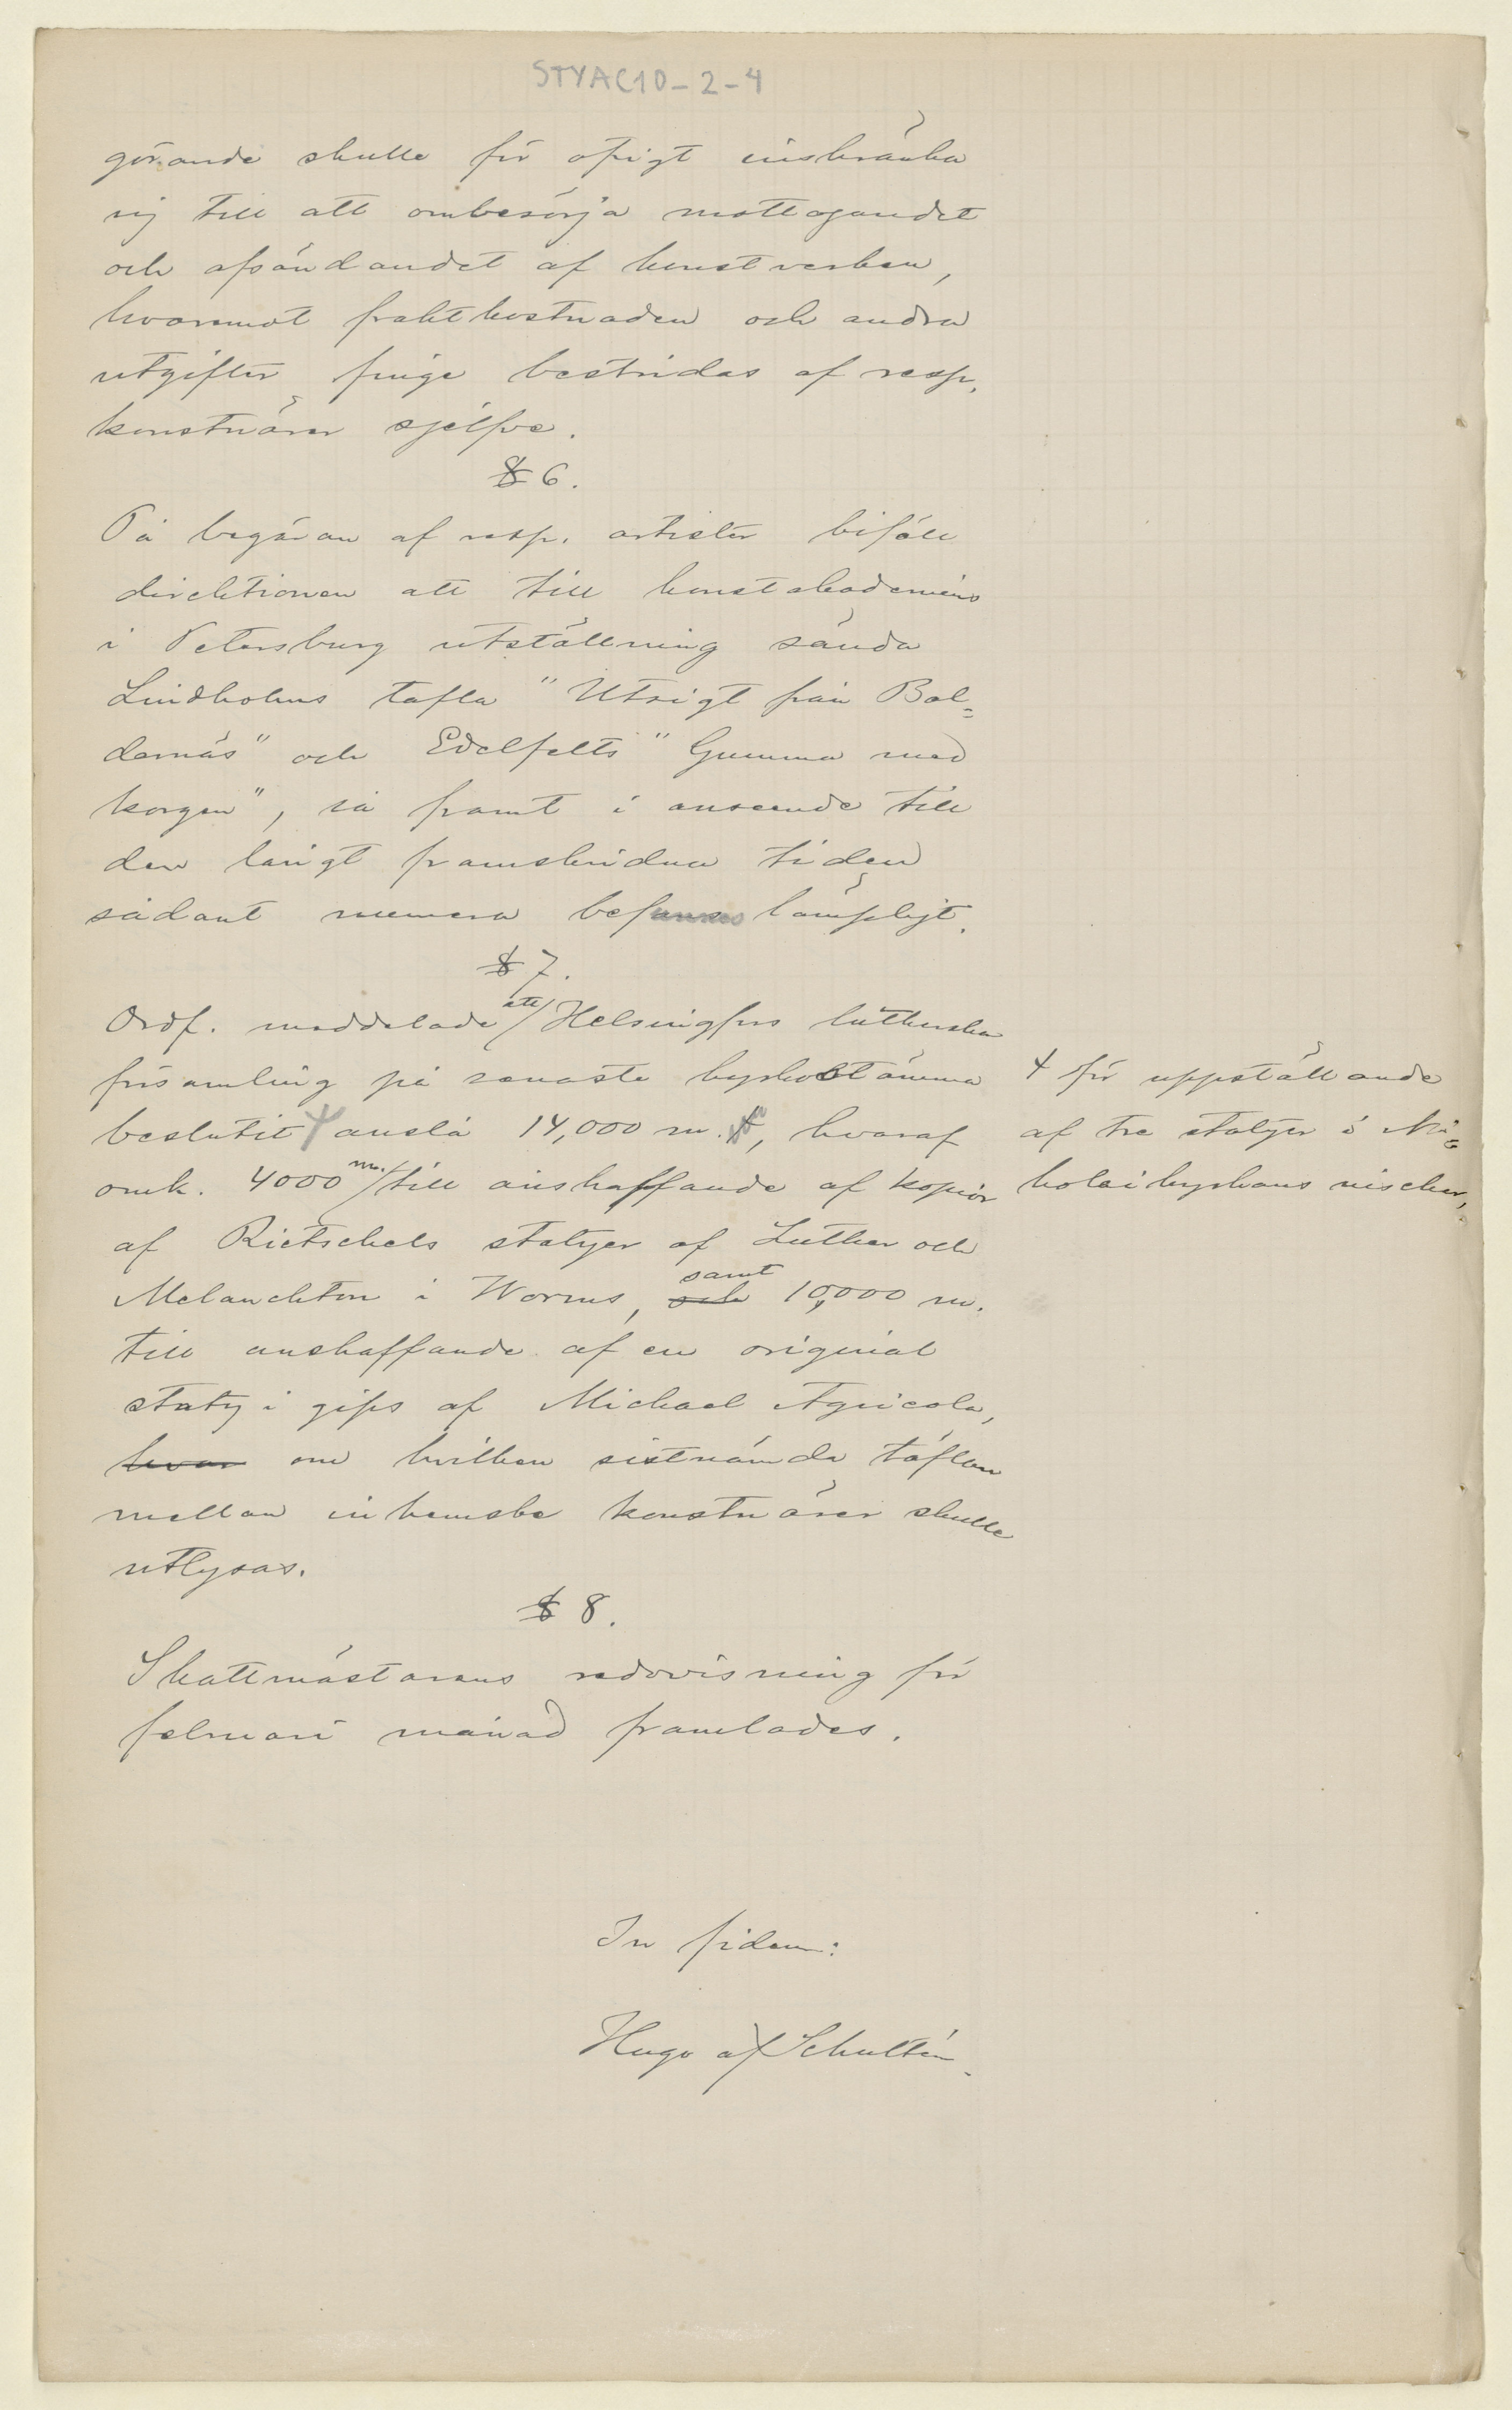 STYAC10-2-4
görande skulle för öfrigt inskränka
sig till att ombesörja mottagandet
och afsändandet af konstverken,
hvaremot fraktkostnaden och andra
utgifter finge bestridas af resp.
konstnärer sjelfve.
§ 6.
På begäran af resp. artister biföll
direktionen att till konstakademiens
i Petersburg utställning sända
Lindholms tafla "Utsigt från Bal=
dernäs" och Edelfelts "Gumma med
korgen", så framt i anseende till
den långt framskridna tiden
sådant numera befanns lämpligt.
§ 7.
Ordf. meddelade att Helsingfors lutherska
församling på senaste kyrkostämma
beslutit anslå 14,000 m., hvaraf
omk. 4000 m. till anskaffande af kopior
af Rietschels statyer af Luther och
Melanchton i Worms, och samt 10,000 m.
till anskaffande af en original
staty i gips af Michael Agricola,
hvar om hvilken sistnämda täflan
mellan inhemske konstnärer skulle
utlysas.
+ för uppställande
af tre statyer i Ni=
kolaikyrkans nischer,
§ 8.
Skattmästarens redovisning för
februari månad framlades.
In fidem:
Hugo af Schultén.